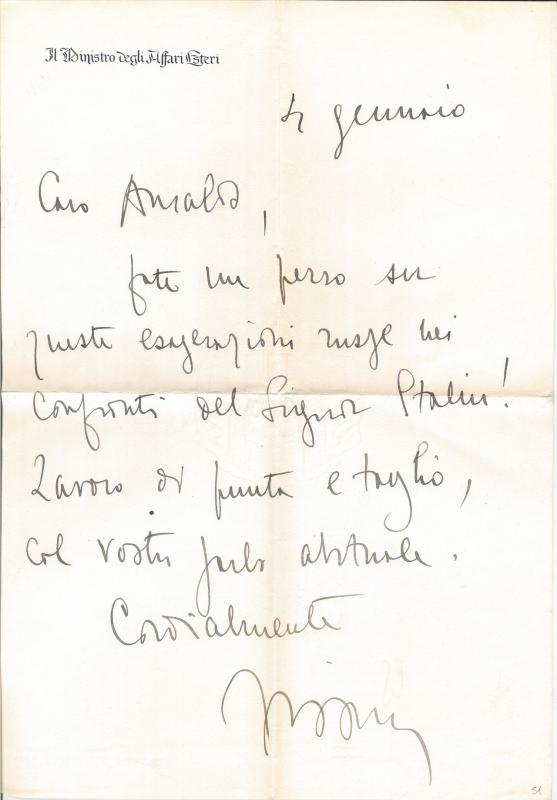 Il Ministro degli Affari Esteri
4 gennaio
Caro Ansaldo,
fate un pezzo su
queste esagerazioni russe nei
confronti del Signor Stalin!
Lavoro di punta e taglio,
col vostro garbo abituale.
Cordialmente
51